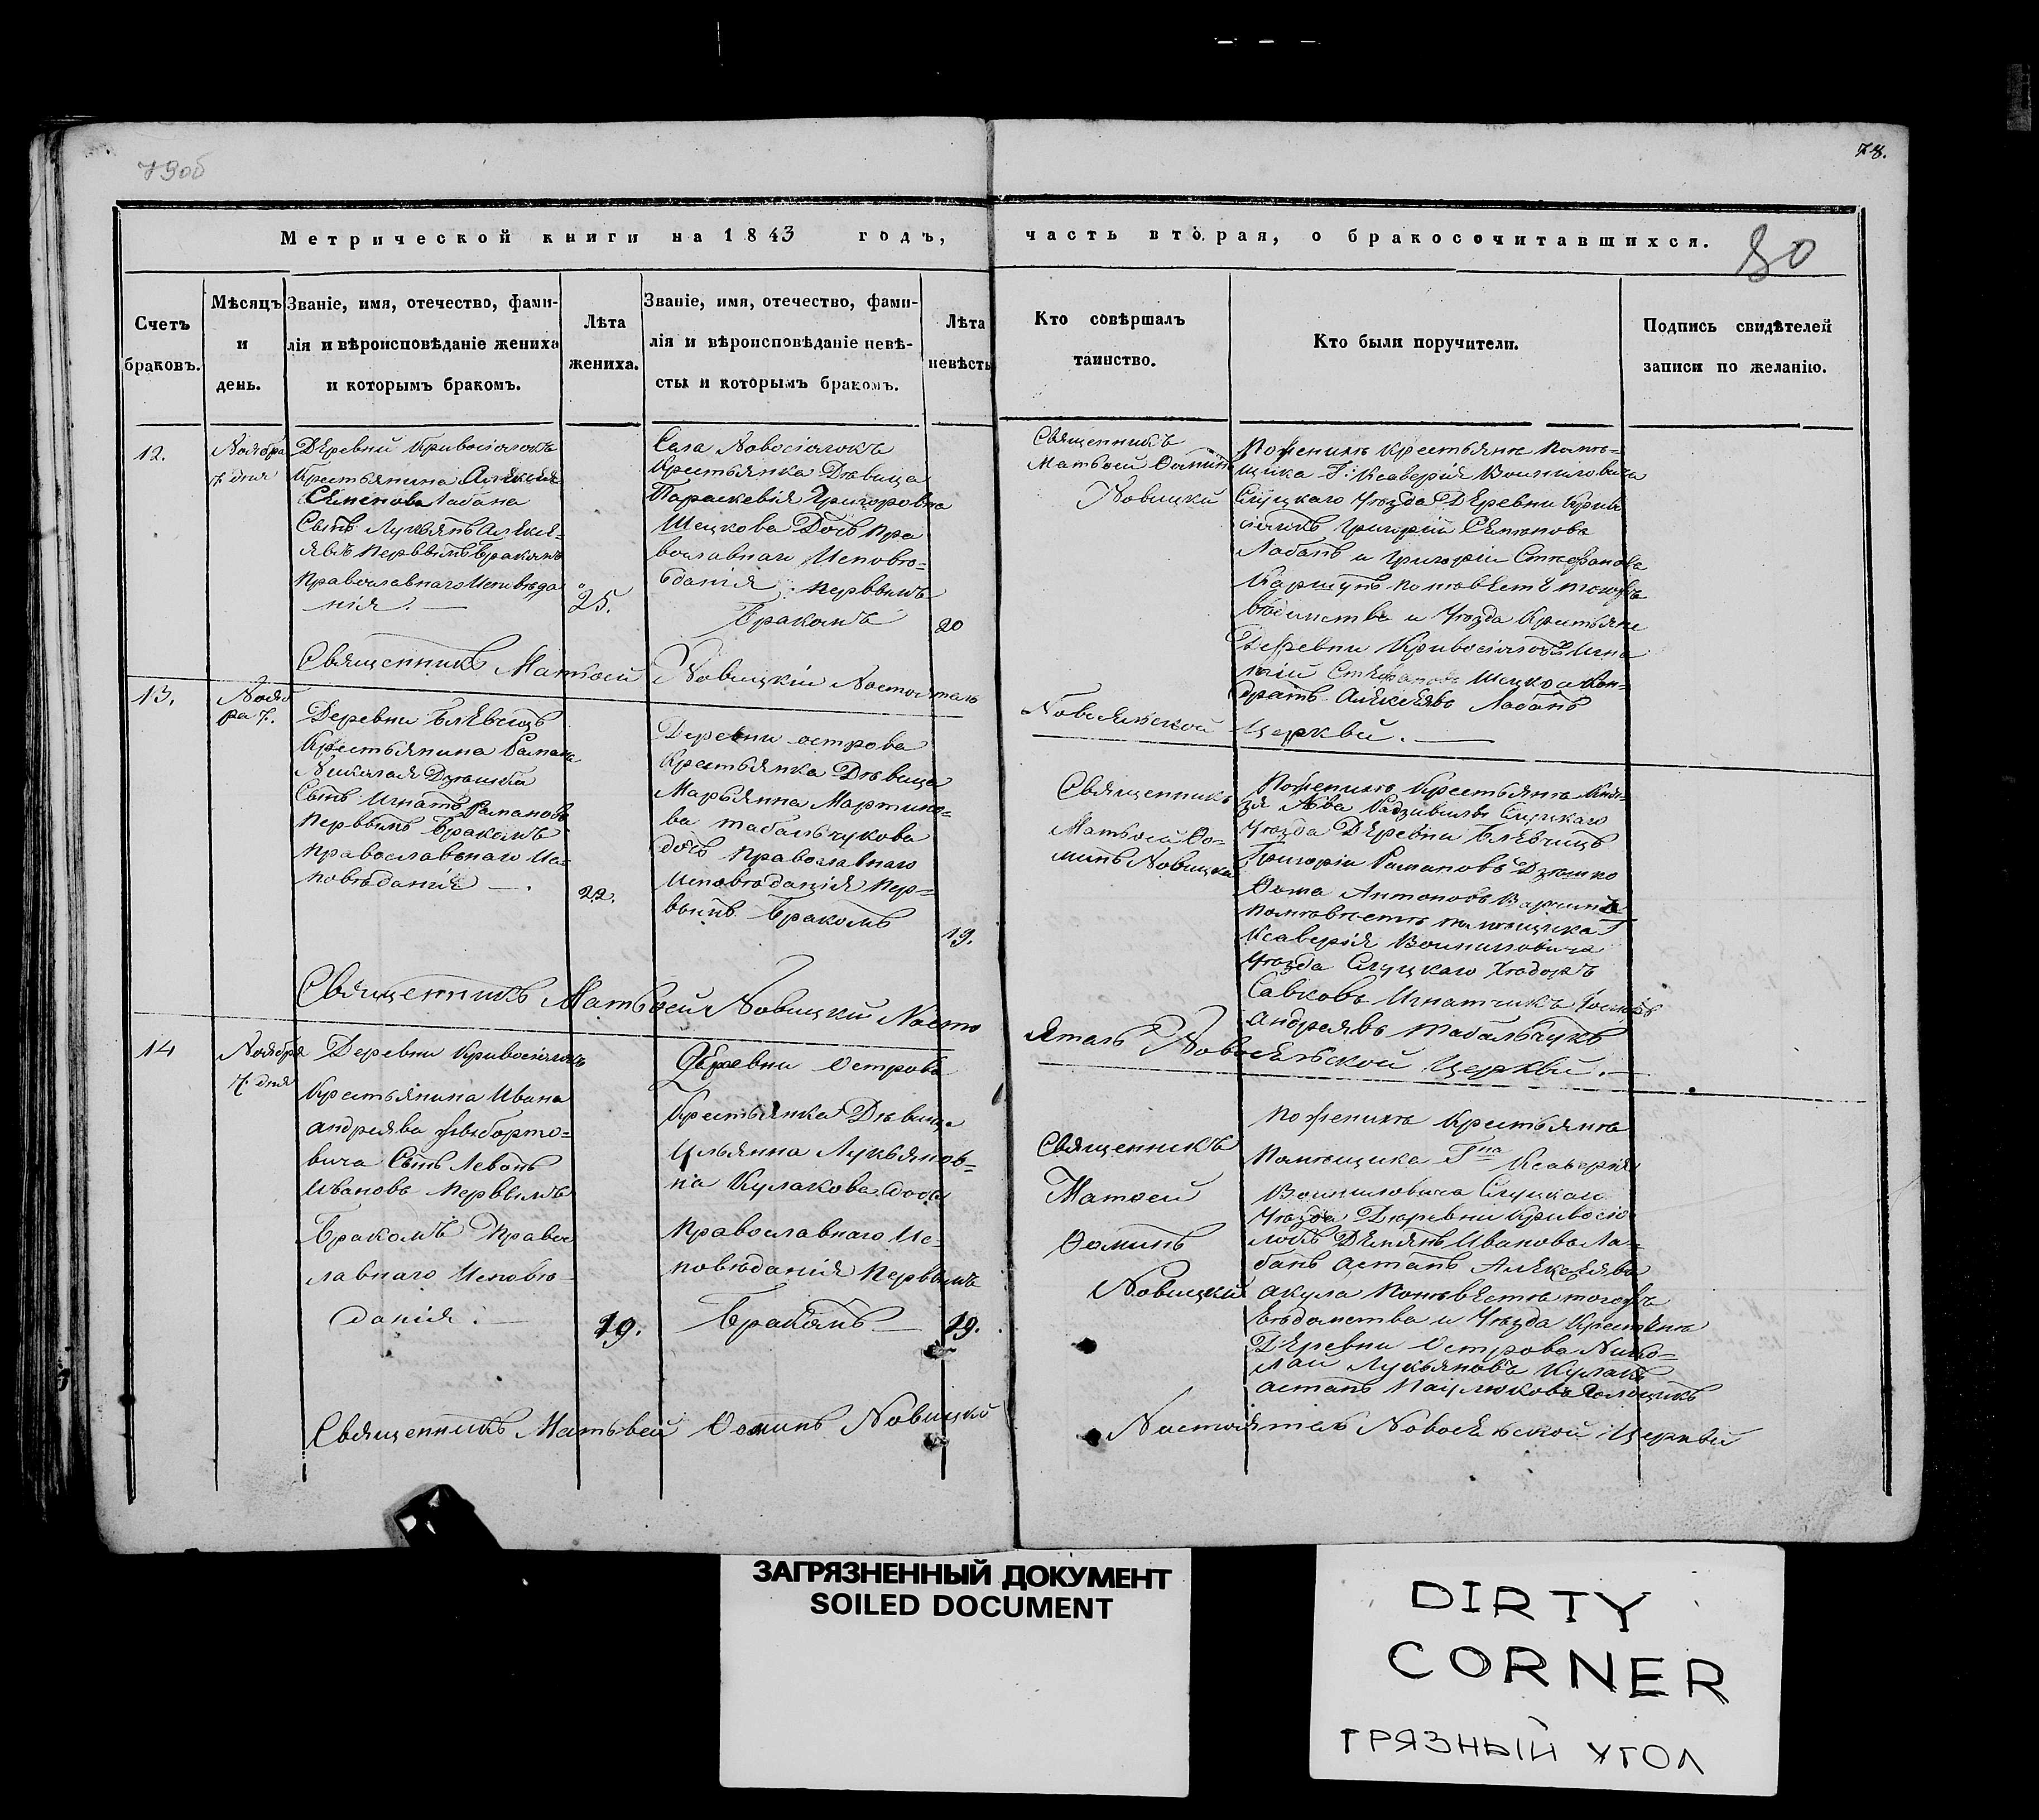 79об
78.
Метрической книги на 1843 годъ,
часть вторая, о бракосочитавшихся.
80
Счетъ браковъ.
Мѣсяцъ и день.
Званіе, имя, отечество, фами-
лія и вѣроисповѣданіе жениха
и которымъ бракомъ.
Лѣта жениха.
Званіе, имя, отечество, фами-
лія и вѣроисповѣданіе невѣ-
сты и которымъ бракомъ.
Лѣта невѣсты
Кто совѣршалъ
таинство.
Кто были поручители.
Подпись свидѣтелей
записи по желанію.
12.
Ноября
7 дня
Деревни Кривосіолокъ
Крестьянина Алексея
Сѣменова Лабана
Сынъ Лукьянъ Алексе-
явъ первымъ бракомъ
православнаго исповѣда
нія. —
25.
Села Новосіолокъ
Крестьянка Дѣвица
Параскевія Григоровна
Шецкова Дочь пра
вославнаго исповѣ=
данія первымъ
бракомъ
20
Священникъ
Матвей Фоминъ
Новицкій
по женихѣ крестьяне помѣ=
щика Г: Ксаверія Войниловича
Слуцкаго уѣзда Деревни Криво
сіолкъ Григорій Семіоновъ
Лабанъ и Григорій Стефановъ
по невѣсте тогожъ
вѣдомства и уѣзда крестьяне
Деревни Кривосіолокъ Игна
тій Стефановъ Шецко и Кон-
дратъ Алексеявъ Лабанъ
Священникъ Матвей Новицкій Настоятель
Новосельской Церкви. —
13.
Нояб
ря 7.
Деревни Блевчицъ
Крестьянина Рамана
Николая Дзюшка
Сынъ Игнатъ Рамановъ
первымъ бракомъ
православнаго ис=
повѣданія — .
22.
Деревни острова
Крестьянка Дѣвица
Марьянна Мартино=
ва Табальчукова
дочь православнаго
исповѣданія пер=
вымъ бракомъ
19.
Священникъ
Матвей Фо=
минъ Новицкій
по женихѣ крестьяне Кня=
зя Льва Радзивила Слуцкаго
уѣзда Деревни Блевчицъ
Григорій Рамановъ Дзюшко
Фома Антоновъ
по невѣсте помѣщика Г
Ксаверія Войниловича
уѣзда Слуцкаго Хведоръ
Савковъ Игнатчикъ
Андреявъ Табальчукъ
Священникъ Матвей Новицкій Насто
ятель Новосельской Церкви. —
14
Ноября
7. дня
Деревни Кривосіолокъ
Крестьянина Ивана
Андреява
вича Сынъ Леванъ
Ивановъ первымъ
бракомъ правос
лавнаго исповѣ
данія. —
19.
Деревни Острова
Крестьянка Дѣвица
Ульянна Лукьянов=
на Кулакова дочь
православнаго ис=
повѣданія первымъ
бракомъ —
19.
Священникъ
Матвей
Фоминъ
Новицкій
по женихѣ крестьяне
помѣщика Гна Ксаверія
Войниловича Слуцкаго
уѣзда Деревни Кривосіо
локъ Демянъ Ивановъ Ла=
банъ Астапъ Алексеявъ
Акула по невѣсте тогожъ
вѣдомства и уѣзда крестьяне
Деревни Острова Нико=
лай Лукьяновъ Кулакъ
Астапъ
Священникъ Матвей Фоминъ Новицкій
Настоятель Новосельской Церкви
ЗАГРЯЗНЕННЫЙ ДОКУМЕНТ
SOILED DOCUMENT
DIRTY
CORNER
ГРЯЗНЫЙ УГОЛ